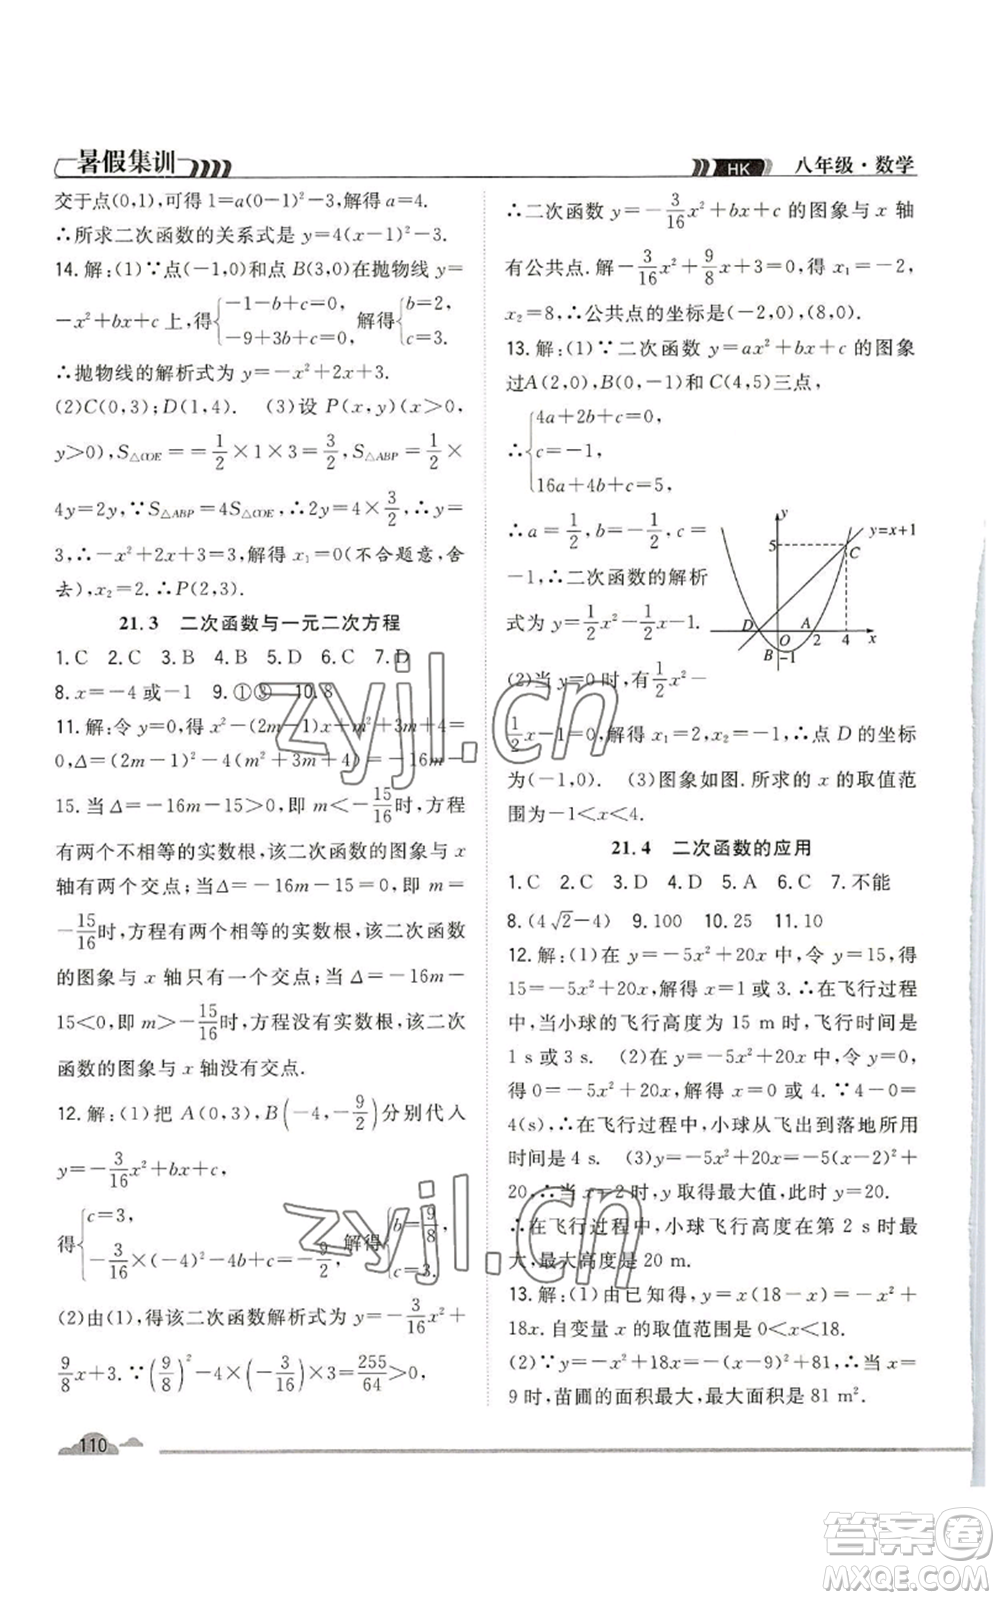 暑假集训
HK 八年级·数学
交于点(0,1),可得 1=a(0-1)²-3,解得 a=4.
∴所求二次函数的关系式是 y=4(x-1)²-3.
14.解:(1)∵点(-1,0)和点 B(3,0)在抛物线 y=
-x²+bx+c 上,得{-1-b+c=0, -9+3b+c=0, 解得{b=2, c=3.
∴抛物线的解析式为 y=-x²+2x+3.
(2)C(0,3);D(1,4). (3)设 P(x,y)(x>0,
y>0),S△COE==1/2×1×3=3/2,S△ABP=1/2×
4y=2y,∵S△ABP=4S△COE,∴2y=4×3/2,∴y=
3,∴-x²+2x+3=3,解得 x₁=0(不合题意,舍
去),x₂=2.∴P(2,3).
21.3 二次函数与一元二次方程
1.C 2.C 3.B 4.B 5.C 6.C 7.D
8.x=-4或-1 9.①③ 10.8
11.解:令 y=0,得 x²-(2m-1)x+m²+3m+4=
0,Δ=(2m-1)²-4(m²+3m+4)=-16m-
15.当 Δ=-16m-15>0,即 m<-15/16时,方程
有两个不相等的实数根,该二次函数的图象与 x
轴有两个交点;当 Δ=-16m-15=0,即 m=
-15/16时,方程有两个相等的实数根,该二次函数
的图象与 x 轴只有一个交点;当 Δ=-16m-
15<0,即 m>-15/16时,方程没有实数根,该二次
函数的图象与 x 轴没有交点.
12.解:(1)把 A(0,3),B(-4,-9/2)分别代入
y=-3/16x²+bx+c,
得{c=3, -3/16×(-4)²-4b+c=-9/2, 解得{b=9/8, c=3.
(2)由(1),得该二次函数解析式为 y=-3/16x²+
9/8x+3.∵(9/8)²-4×(-3/16)×3=255/64>0,
∴二次函数 y=-3/16x²+bx+c 的图象与 x 轴
有公共点.解-3/16x²+9/8x+3=0,得 x₁=-2,
x₂=8,∴公共点的坐标是(-2,0),(8,0).
13.解:(1)∵二次函数 y=ax²+bx+c 的图象
过A(2,0),B(0,-1)和C(4,5)三点,
∴{4a+2b+c=0, c=-1, 16a+4b+c=5,
∴a=1/2,b=-1/2,c=
-1,∴二次函数的解析
式为 y=1/2x²-1/2x-1.
(2)当 y=0时,有1/2x²-
y
y=x+1
5
C
D A
O 2 4 x
B -1
1/2x-1=0,解得 x₁=2,x₂=-1,∴点 D 的坐标
为(-1,0). (3)图象如图.所求的 x 的取值范
围为-1<x<4.
21.4 二次函数的应用
1.C 2.C 3.D 4.D 5.A 6.C 7.不能
8.(4√2-4) 9.100 10.25 11.10
12.解:(1)在 y=-5x²+20x中,令 y=15,得
15=-5x²+20x,解得 x=1或 3.∴在飞行过程
中,当小球的飞行高度为 15 m时,飞行时间是
1 s或 3 s. (2)在 y=-5x²+20x 中,令 y=0,
得 0=-5x²+20x,解得 x=0或 4.∵4-0=
4(s),∴在飞行过程中,小球从飞出到落地所用
时间是 4 s. (3)y=-5x²+20x=-5(x-2)²+
20,∴当 x=2时,y 取得最大值,此时 y=20.
∴在飞行过程中,小球飞行高度在第 2 s时最
大,最大高度是 20 m.
13.解:(1)由已知得,y=x(18-x)=-x²+
18x.自变量 x 的取值范围是 0<x<18.
(2)∵y=-x²+18x=-(x-9)²+81,∴当 x=
9时,苗圃的面积最大,最大面积是 81 m².
110
zyjl.cn
zyjl.cn
答案圈
MXQE.COM